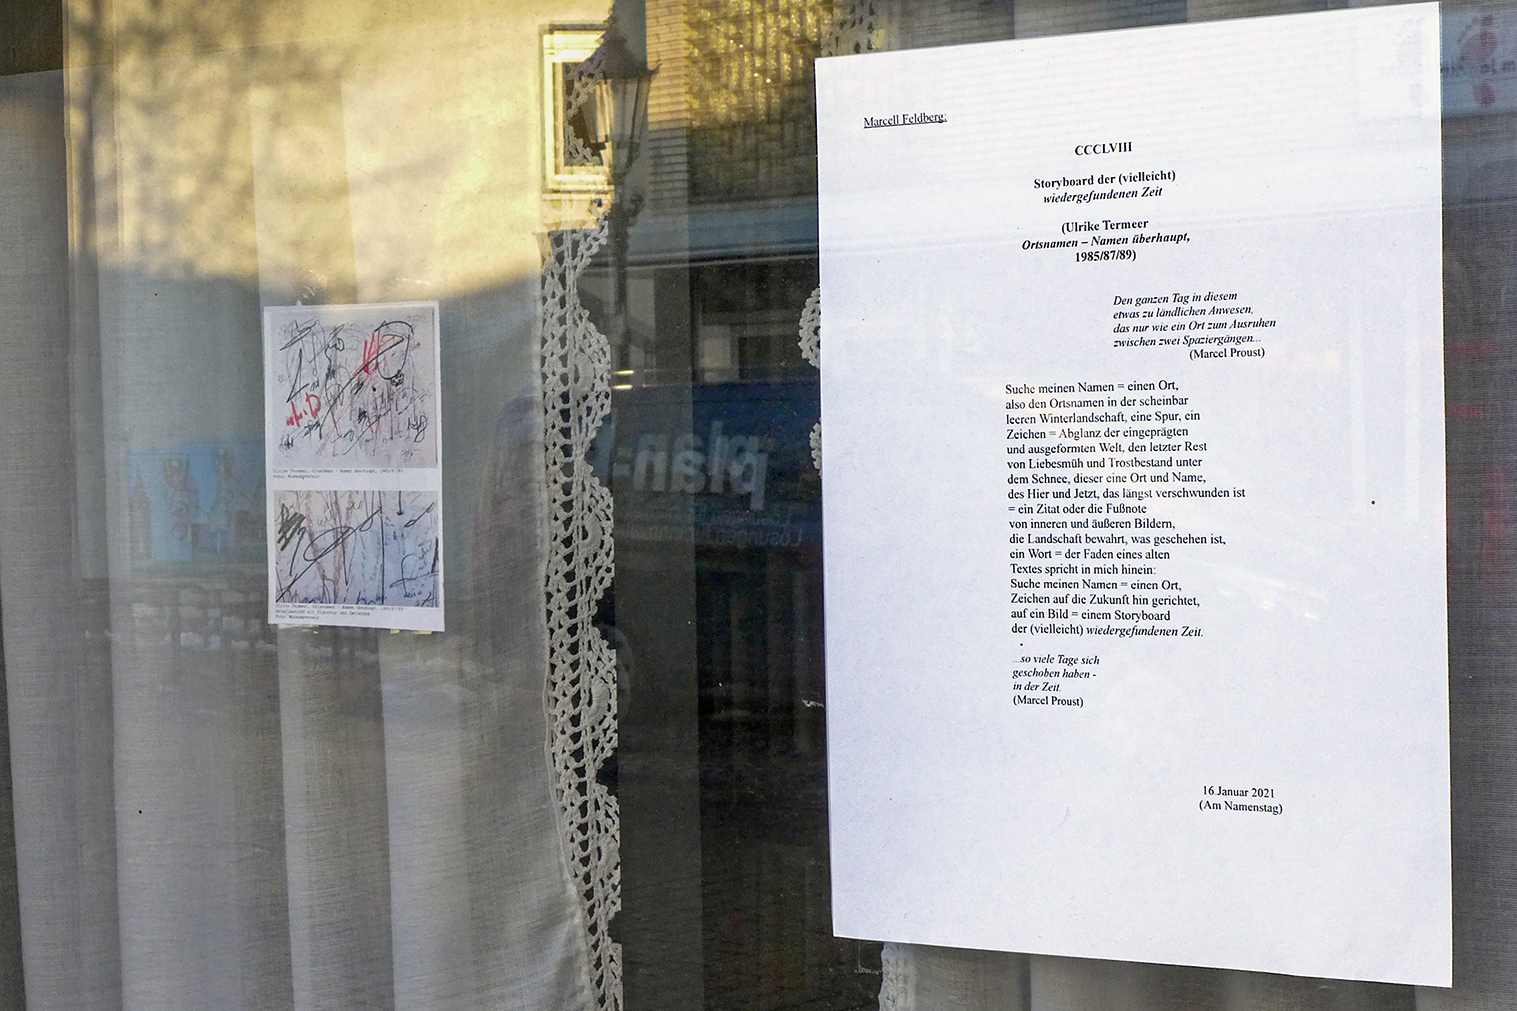 Marcell Feldberg:
CCCLVIII
Storyboard der (vielleicht)
wiedergefundenen Zeit
(Ulrike Termeer
Ortsnamen – Namen überhaupt,
1985/87/89)
Den ganzen Tag in diesem
etwas zu ländlichen Anwesen,
das nur wie ein Ort zum Ausruhen
zwischen zwei Spaziergängen...
(Marcel Proust)
Suche meinen Namen = einen Ort,
also den Ortsnamen in der scheinbar
leeren Winterlandschaft, eine Spur, ein
Zeichen = Abglanz der eingeprägten
und ausgeformten Welt, den letzter Rest
von Liebesmüh und Trostbestand unter
dem Schnee, dieser eine Ort und Name,
des Hier und Jetzt, das längst verschwunden ist
= ein Zitat oder die Fußnote
von inneren und äußeren Bildern,
die Landschaft bewahrt, was geschehen ist,
ein Wort = der Faden eines alten
Textes spricht in mich hinein:
Suche meinen Namen = einen Ort,
Zeichen auf die Zukunft hin gerichtet,
auf ein Bild = einem Storyboard
der (vielleicht) wiedergefundenen Zeit.
...so viele Tage sich
geschoben haben -
in der Zeit.
(Marcel Proust)
16.Januar 2021
(Am Namenstag)
Ulrike Termeer, Ortsnamen - Namen überhaupt, 1985/87/89
Foto: Museumsverein
Ulrike Termeer, Ortsnamen - Namen überhaupt, 1985/87/89
Foto: Museumsverein
plan-